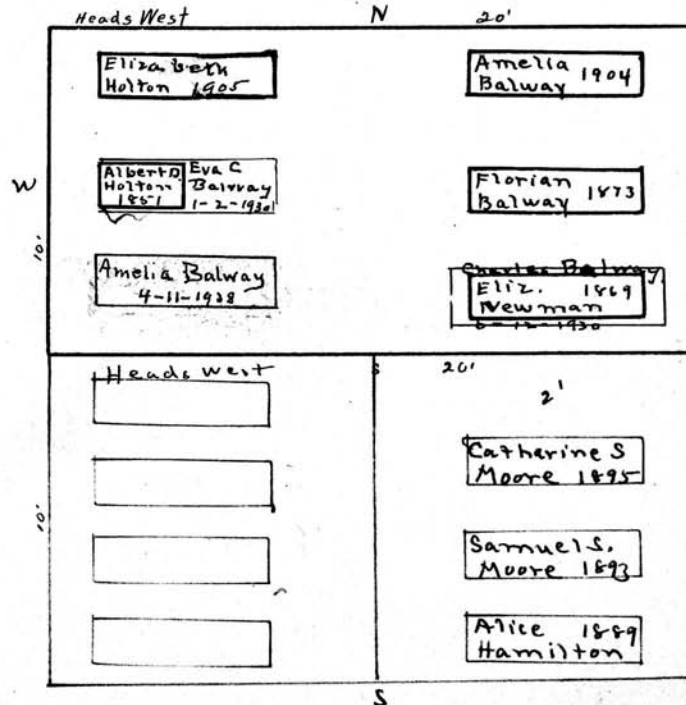 Heads West N 20'
Elizabeth
Holton 1905
Amelia
Balway 1904
W
Albert D
Holton
1851
Eva C
Balway
1-2-1930
Florian
Balway 1873
10'
Amelia Balway
4-11-1938
Charles Balway
Eliz. 1869
Newman
-12-1930
Heads West S 20'
2'
Catherine S
Moore 1895
10'
Samuel S.
Moore 1893
Alice 1889
Hamilton
S